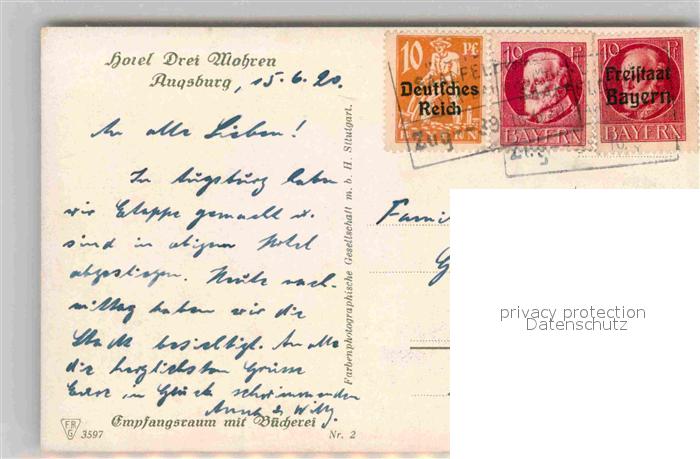 Hotel Drei Mohren
Augsburg, 15.6.20.
An alle Lieben!
In Augsburg haben
wir Etappe gemacht u.
sind in obigem Hotel
abgestiegen. Heute nach-
mittag haben wir die
Stadt besichtigt. An alle
die herzlichsten Grüsse
Eure in Glück schwimmenden
Anna & Willy.
Empfangsraum mit Bücherei
3597
Nr. 2
Farbenphotographische Gesellschaft m. b. H. Stuttgart.
10 Pf
Deutsches
Reich
10 Pf
BAYERN
10 Pf
Freistaat
Bayern
BAYERN
Zug
Zug
Famil
privacy protection
Datenschutz